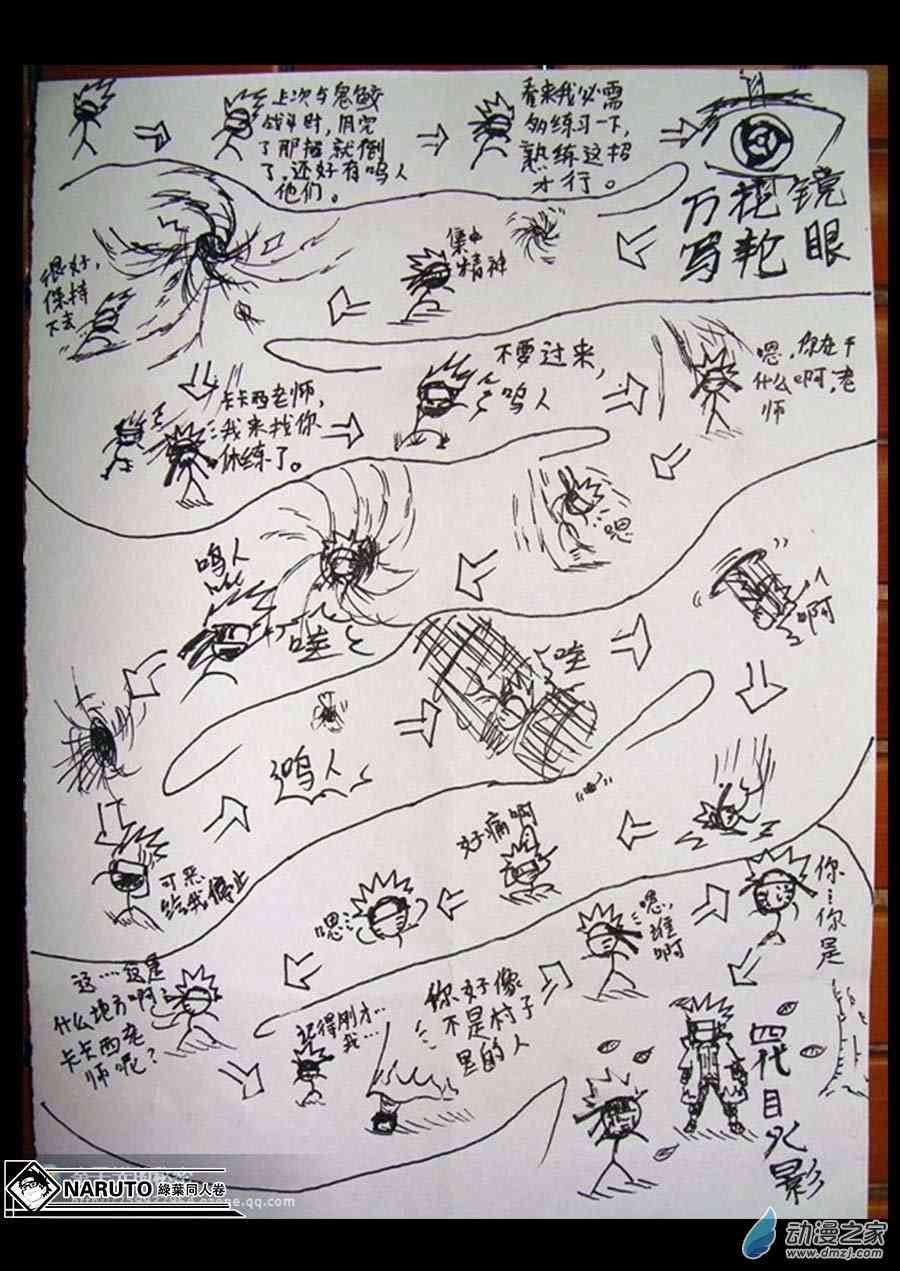 上次与鬼鲛
战斗时，用完
了那招就倒
了，还好有鸣人
他们。
看来我必需
多练习一下，
熟练这招
才行。
万花镜
写轮眼
集中
精神
很好，
保持
下去
卡卡西老师，
我来找你
休练了。
不要过来，
鸣人
嗯，你在干
什么啊，老
师
嗯
鸣人
哇
哇
啊
鸣人
可恶
给我停止
好痛啊
嗯
这……这是
什么地方啊？
卡卡西老
师呢？
记得刚才…
我…
你好像
不是村子
里的人
嗯，
谁
啊
你…你是
四代目火影
NARUTO 綠葉同人卷
动漫之家
www.dmzj.com